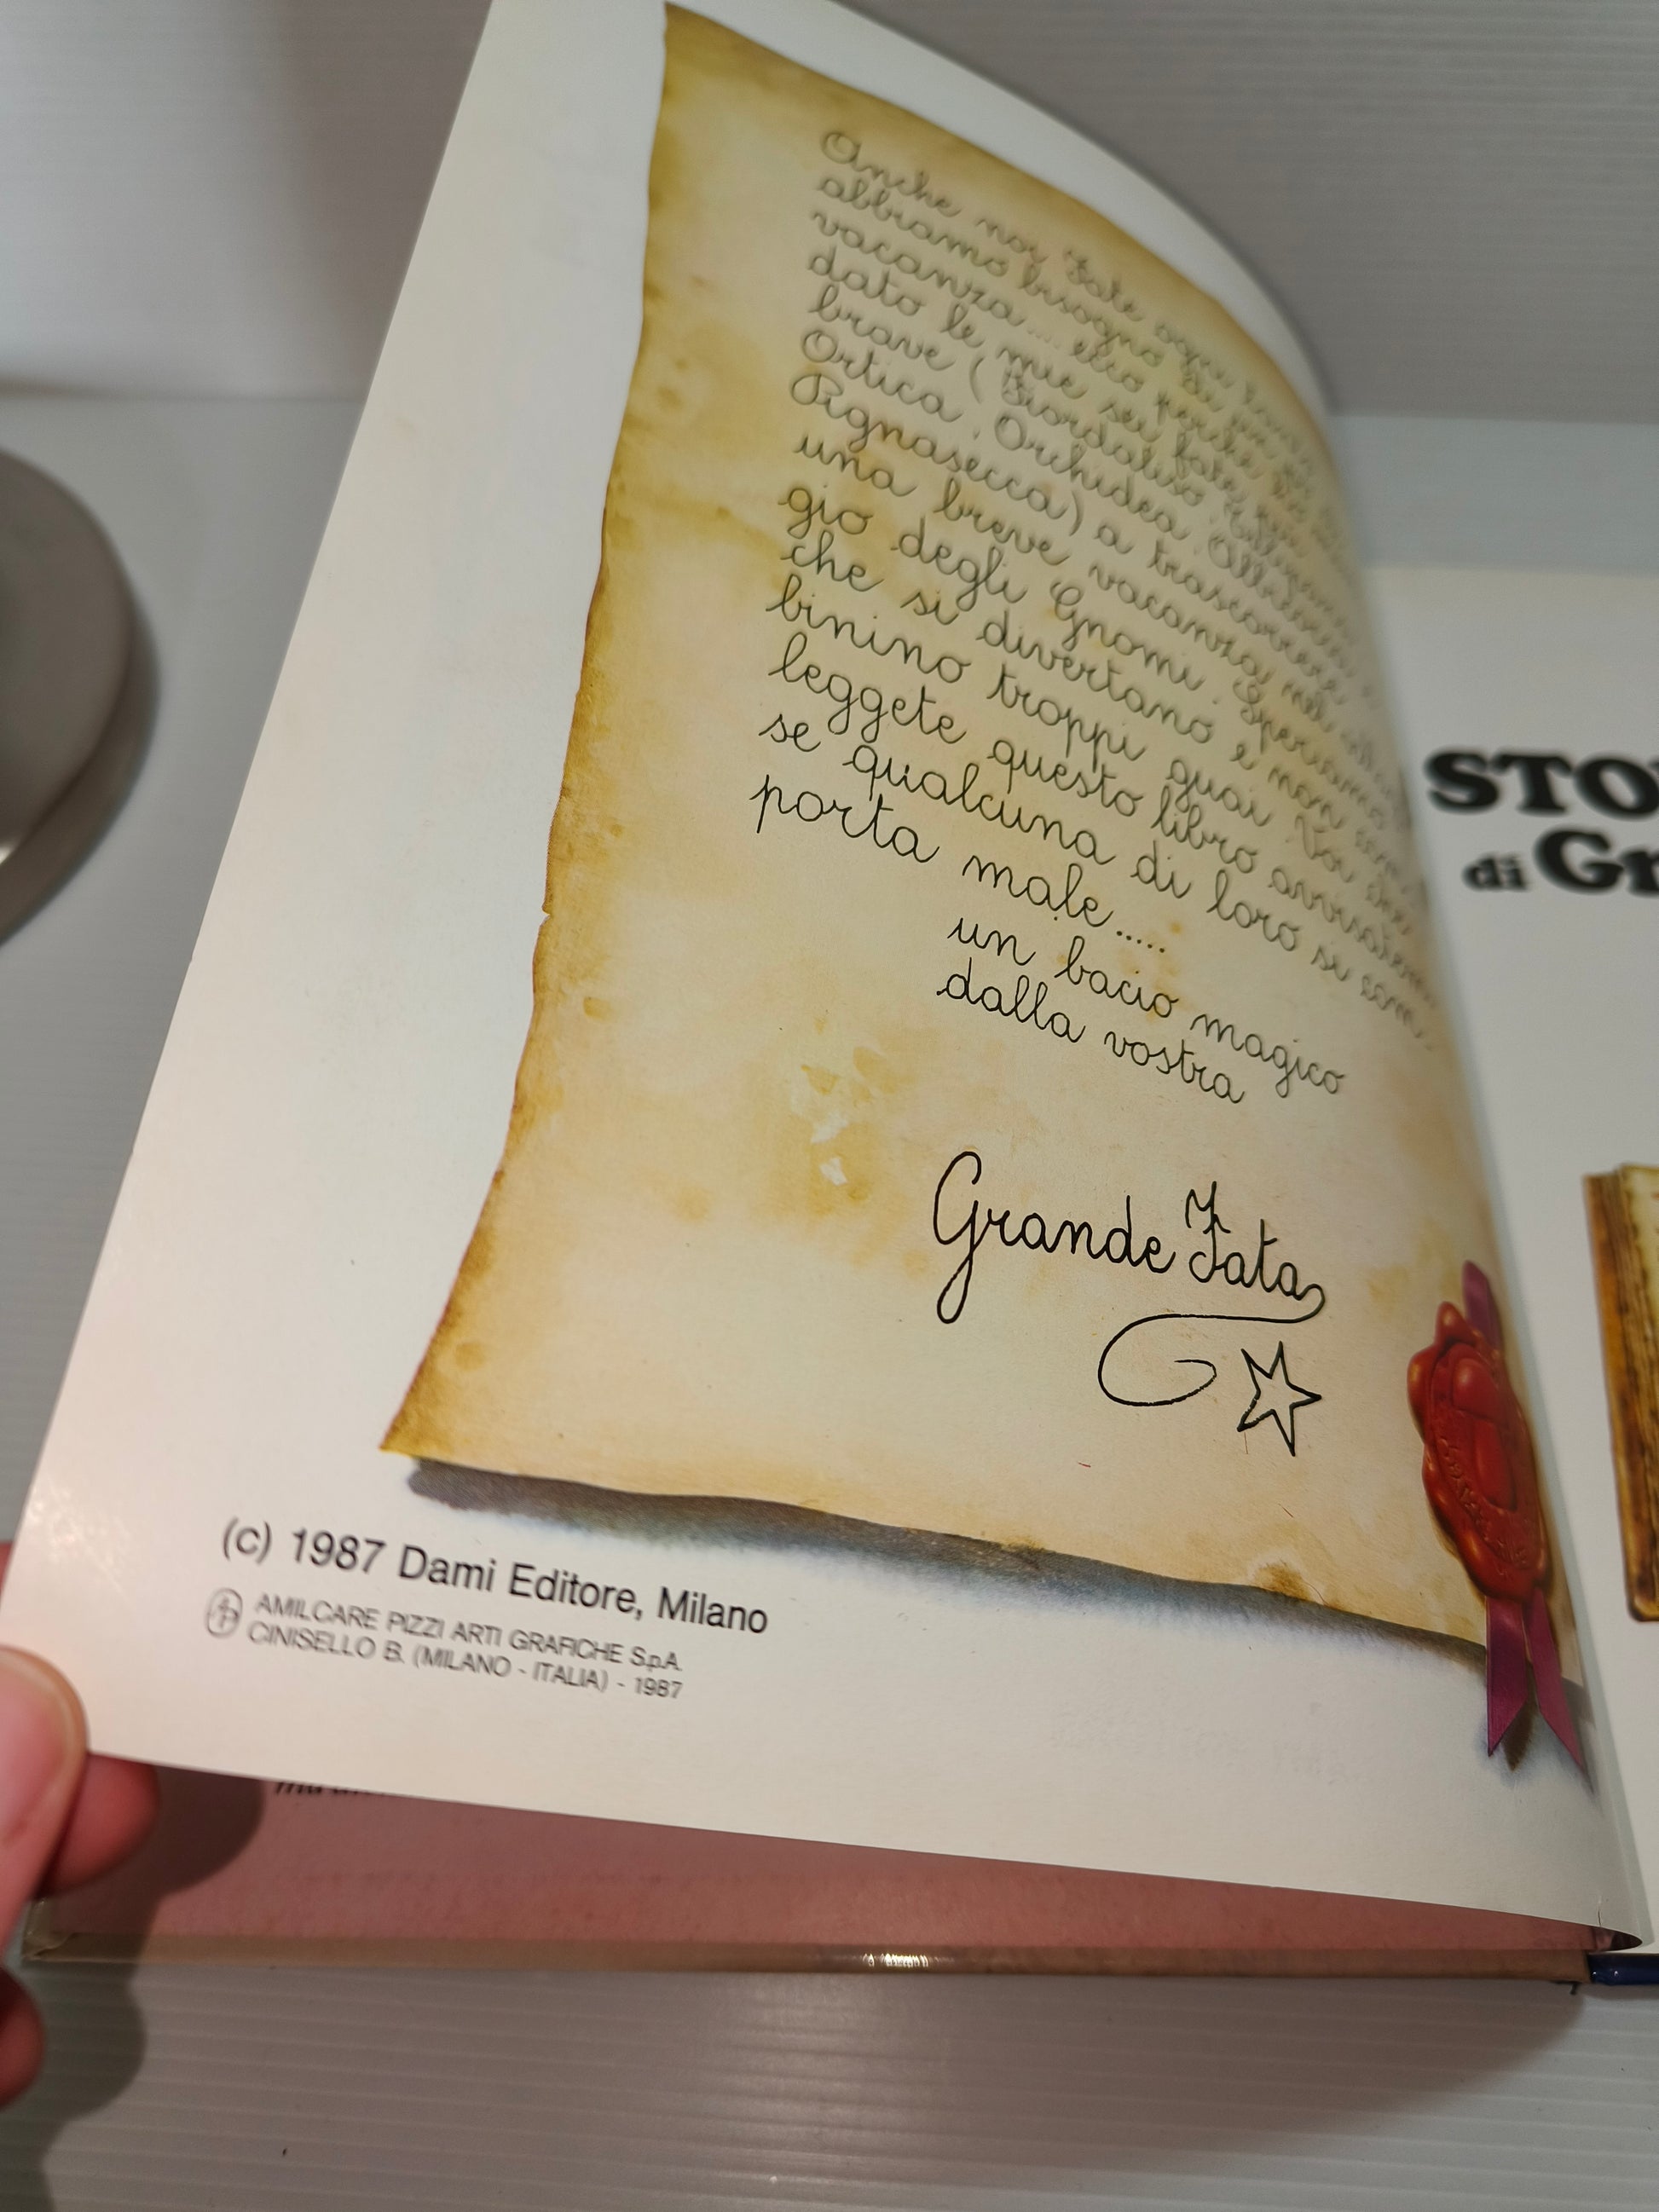 Anche noi Fate ogni
abbiamo bisogno di
vacanza.... ecco perchè
dato le mie sei fate più
brave (Fiordaliso,
Ortica, Orchidea,
Pignasecca) a trascorrere
una breve vacanza nel
gio degli Gnomi. Speriamo
che si divertano e non com-
binino troppi guai. Voi che
leggete questo libro avvisatemi
se qualcuna di loro si com-
porta male.....
un bacio magico
dalla vostra
Grande Fata
(c) 1987 Dami Editore, Milano
AMILCARE PIZZI ARTI GRAFICHE S.p.A.
CINISELLO B. (MILANO - ITALIA) - 1987
di